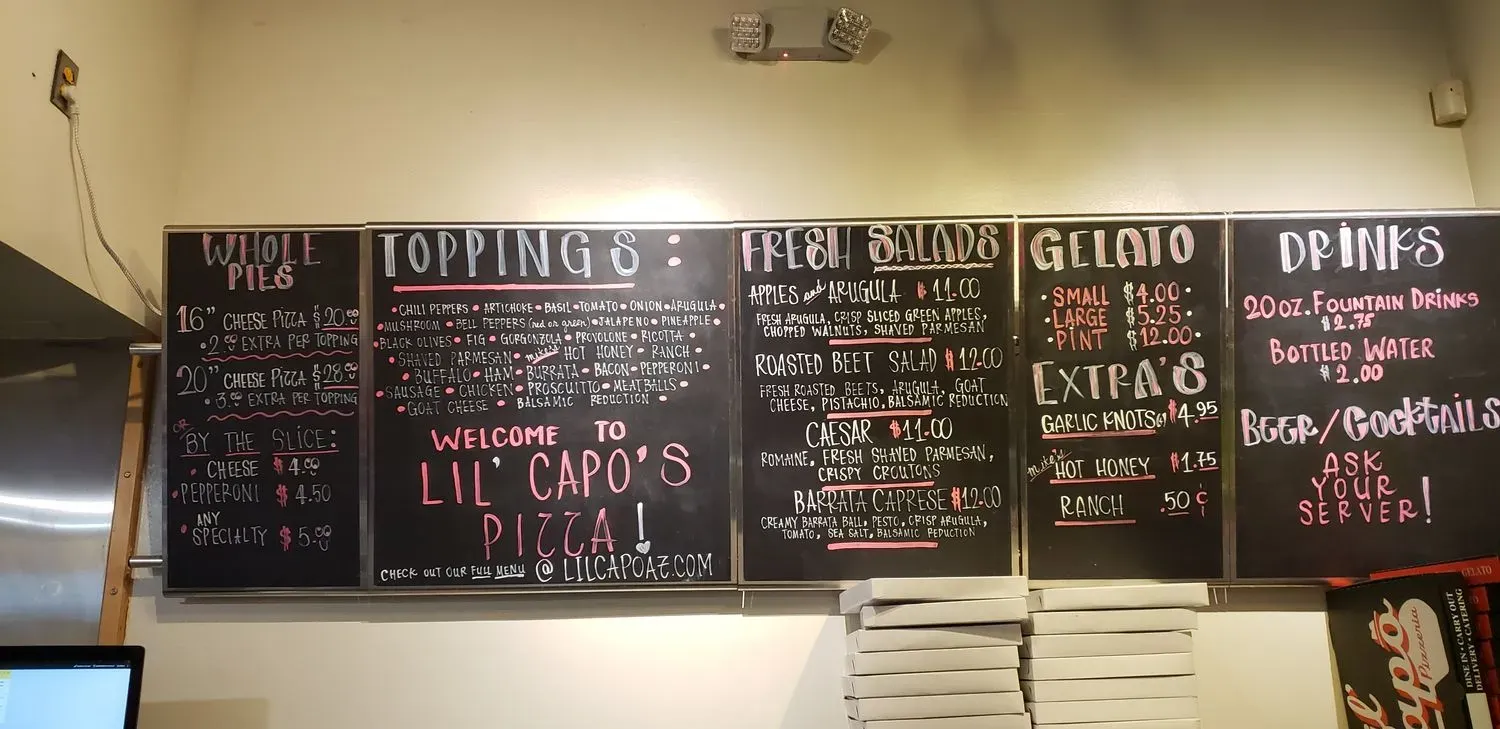 WHOLE
PIES
16" CHEESE PIZZA $20.00
• 2.00 EXTRA PER TOPPING
20" CHEESE PIZZA $28.00
• 3.00 EXTRA PER TOPPING
OR
BY THE SLICE:
• CHEESE $4.00
• PEPPERONI $4.50
• ANY
SPECIALTY $5.00
TOPPINGS:
• CHILI PEPPERS • ARTICHOKE • BASIL • TOMATO • ONION • ARUGULA •
• MUSHROOM • BELL PEPPERS (red or green) • JALAPENO • PINEAPPLE •
• BLACK OLIVES • FIG • GORGONZOLA • PROVOLONE • RICOTTA •
• SHAVED PARMESAN • Mike's HOT HONEY • RANCH •
• BUFFALO • HAM • BURRATA • BACON • PEPPERONI •
• SAUSAGE • CHICKEN • PROSCUITTO • MEATBALLS •
• GOAT CHEESE • BALSAMIC REDUCTION •
WELCOME TO
LIL' CAPO'S
PIZZA!
CHECK OUT OUR FULL MENU @ LILCAPOAZ.COM
FRESH SALADS
APPLES and ARUGULA $11.00
FRESH ARUGULA, CRISP SLICED GREEN APPLES,
CHOPPED WALNUTS, SHAVED PARMESAN
ROASTED BEET SALAD $12.00
FRESH ROASTED BEETS, ARUGULA, GOAT
CHEESE, PISTACHIO, BALSAMIC REDUCTION
CAESAR $11.00
ROMAINE, FRESH SHAVED PARMESAN,
CRISPY CROUTONS
BARRATA CAPRESE $12.00
CREAMY BARRATA BALL, PESTO, CRISP ARUGULA,
TOMATO, SEA SALT, BALSAMIC REDUCTION
GELATO
• SMALL $4.00 •
• LARGE $5.25 •
• PINT $12.00 •
EXTRA'S
GARLIC KNOTS $4.95
Mike's HOT HONEY $1.75
RANCH .50¢
DRINKS
20oz. FOUNTAIN DRINKS
$2.75
BOTTLED WATER
$2.00
BEER/COCKTAILS
ASK
YOUR
SERVER!
GELATO
Pizzeria
DINE IN • CARRY OUT
DELIVERY • CATERING